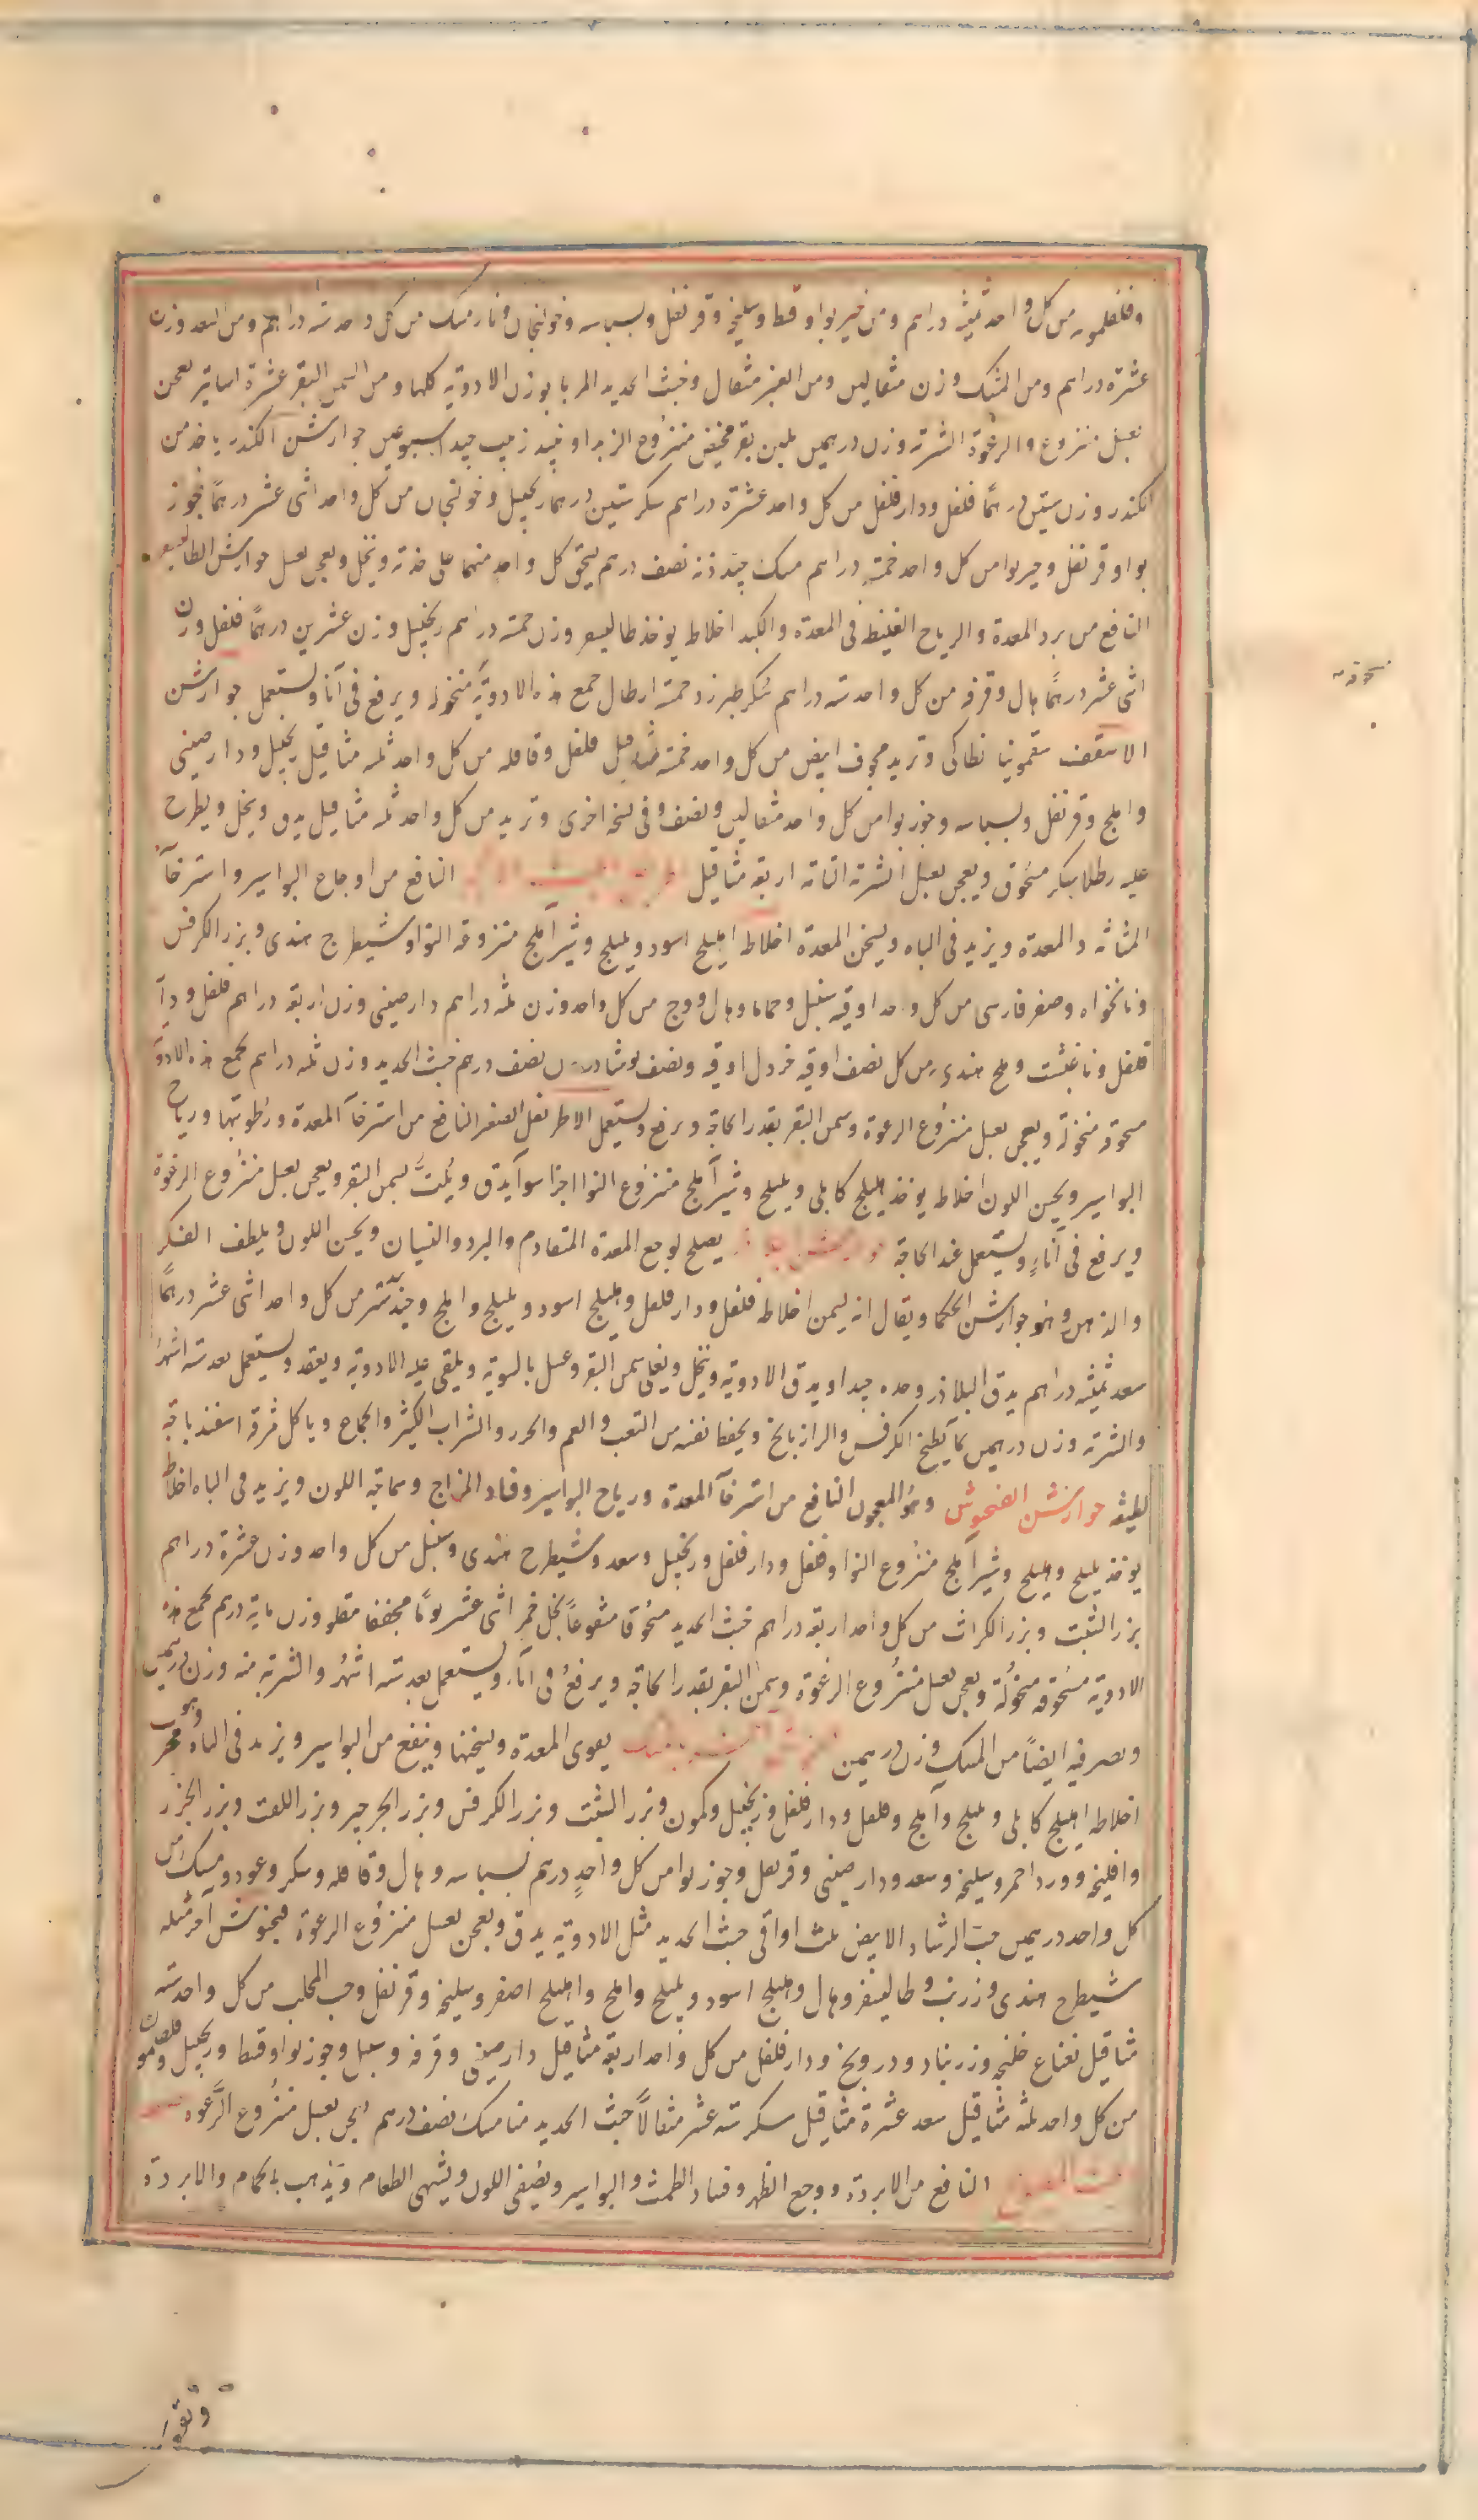 وفلفلمويه من كل واحد ثمنيه دراهم ومن خيربوا وقسط وسليخه وقرنفل وبسباسه وخولنجان ونارمسك من كل واحد سته دراهم ومن السعد وزن
عشرة دراهم ومن المسك وزن مثقالين ومن العنبر مثقال وخبث الحديد المربا بوزن الادوية كلها ومن السمن البقر عشرة اساتير يعجن
بعسل منزوع الرغوة الشربة وزن درهمين بلبن بقر مخيض منزوع الزبد او نبيذ زبيب جيد اسبوعين جوارشن الكندر ياخذ من
الكندر وزن ستين درهمًا فلفل ودارفلفل من كل واحد عشرة دراهم سكر ستين درهما زنجبيل وخولنجان من كل واحد اثنى عشر درهمًا جوز
بوا وقرنفل وخيربوا من كل واحد خمسة دراهم مسك جيد نصف درهم يسحق كل واحد منهما على حدته وينخل ويعجن بعسل جوارشن الطاليسفر
النافع من برد المعدة والرياح الغليظه فى المعدة والكبد اخلاط يوخذ طاليسفر وزن خمسة دراهم زنجبيل وزن عشرين درهمًا فلفل وزن
اثنى عشر درهمًا هال وقرفه من كل واحد سته دراهم سكر طبرزد خمسة ارطال يجمع هذه الادوية منخولة ويرفع فى آناء ويستعمل جوارشن
الاسقف سقمونيا نطاكى وتربد مجوف ابيض من كل واحد خمسة مثاقيل فلفل وقاقله من كل واحد ثلثه مثاقيل زنجبيل ودارصينى
واملج وقرنفل وبسباسه وجوزبوا من كل واحد مثقالين ونصف وفى نسخه اخرى وتربد من كل واحد ثلثه مثاقيل يدق وينخل ويطرح
عليه رطلا سكر مسحوق ويعجن بعسل الشربة التامة اربعة مثاقيل النافع من اوجاع البواسير واسترخآء
المثانه والمعدة ويزيد فى الباه ويسخن المعدة اخلاطه اهليلج اسود وبليلج وشيرآملج منزوعه النوا وشيطرج هندى وبزر الكرفس
ونانخواه وصعتر فارسى من كل واحد اوقيه سنبل وحماما وهال ووج من كل واحد وزن ثلثه دراهم دارصينى وزن اربعة دراهم فلفل ودار
فلفل ونانخشت وملح هندى من كل نصف اوقيه خردل اوقيه ونصف نوشادر نصف درهم خبث الحديد وزن ثلثه دراهم يجمع هذه الادوية
مسحوقة منخولة ويعجن بعسل منزوع الرغوة وسمن البقر بقدر الحاجة ويرفع ويستعمل الاطريفل الصغير النافع من استرخآء المعدة ورطوبتها ورياح
البواسير ويحسن اللون اخلاط يوخذ هليلج كابلى وبليلج وشيرآملج منزوع النوا اجزا سوآء يدق ويلتّ بسمن البقر ويعجن بعسل منزوع الرغوة
ويرفع فى اناءٍ ويستعمل عند الحاجة يصلح لوجع المعدة المتقادم والبرد والنسيان ويحسن اللون ويلطف الفكر
والذهن وهو جوارشن الحكما ويقال انه ليمن اخلاطه فلفل ودارفلفل وهليلج اسود وبليلج واملج وجندبيدستر من كل واحد اثنى عشر درهمًا
سعد ثمنيه دراهم يدق البلاذر وحده جيدا ويدق الادوية وينخل ويغلى سمن البقر وعسل بالسوية ويلقى عليه الادوية ويعقد ويستعمل بعد سته اشهر
والشربة وزن درهمين بماء يطبخ الكرفس والرازيانج ويحفظ نفسه من التعب والغم والحرد والشراب الكثير والجماع وياكل مرقة اسفيذباجة
لطيفه جوارشن الفنجنوش وهو المعجون النافع من استرخآء المعدة ورياح البواسير وفساد المزاج وسماجة اللون ويزيد فى الباه اخلاط
يوخذ بليلج وهليلج وشيرآملج منزوع النوا وفلفل ودارفلفل وزنجبيل وسعد وشيطرج هندى وسنبل من كل واحد وزن عشرة دراهم
بزر الشبت وبزر الكراث من كل واحد اربعة دراهم خبث الحديد مسحوقا منقوعاً بخل خمر اثنى عشر يومًا مجففا مقلو وزن ماية درهم يجمع هذه
الادوية مسحوقه منخولة ويعجن بعسل منزوع الرغوة وسمن البقر بقدر الحاجة ويرفع فى اناء ويستعمل بعد سته اشهر والشربة منه وزن درهمين
ويصر فيه ايضاً من المسك وزن درهمين يقوى المعدة ويسخنها وينفع من البواسير ويزيد فى الباه وهو مجرب
اخلاطه اهليلج كابلى وبليلج وآملج وفلفل ودارفلفل وزنجبيل وكمون وبزر الشبت وبزر الكرفس وبزر الجرجير وبزر اللفت وبزر الجزر
وافليجه وورد احمر وسليخه وسعد ودارصينى وقرنفل وجوزبوا من كل واحدٍ درهم بسباسه وهال وقاقله وسكر وعود ومسك من
كل واحد درهمين حبّ الرشاد الابيض ثلث اواقى خبث الحديد مثل الادوية يدق ويعجن بعسل منزوع الرغوة فنجنوش آخر مثله
شيطرج هندى وزرنب وطاليسفر وهال وهليلج اسود وبليلج واملج واهليلج اصفر وسليخه وقرنفل وحب المحلب من كل واحد سته
مثاقيل نعناع خلنجه وزرنباد ودرونج ودارفلفل من كل واحد اربعة مثاقيل دارصينى وقرفه وسنبل وجوزبوا وقسط وزنجبيل وفلفلمويه
من كل واحد ثلثه مثاقيل سعد عشرة مثاقيل سكر سته عشر مثقالاً خبث الحديد منا مسك نصف درهم يعجن بعسل منزوع الرّغوه
النافع من الابردة ووجع الظهر وفساد الطمث والبواسير ويصفى اللون ويشهى الطعام ويذهب بالحمام والابردة